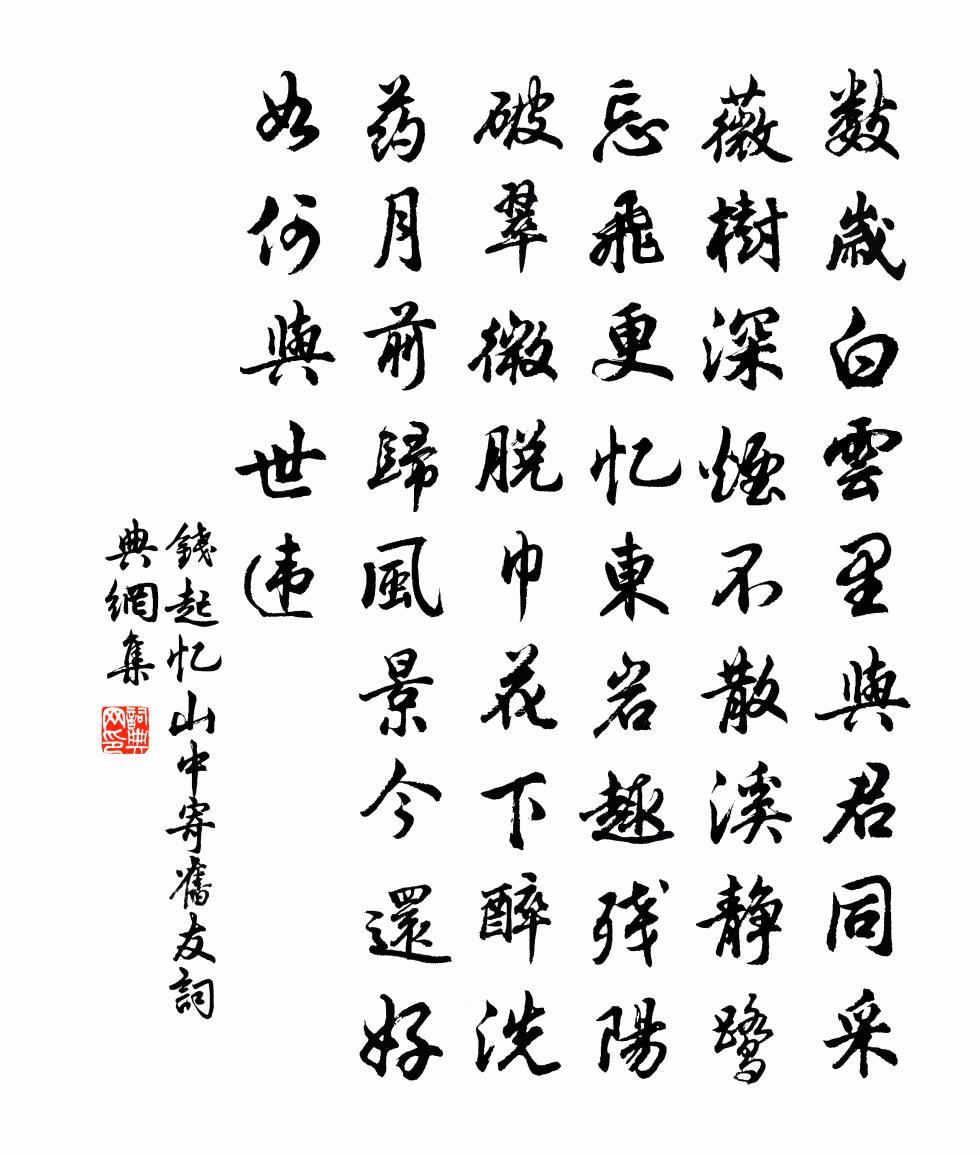 數歲白雲里與君同采
薇樹深煙不散溪靜鷺
忘飛更忆東岩趣残陽
破翠微脱巾花下醉洗
药月前歸風景今還好
如何與世违
錢起忆山中寄舊友詞
典網集
詞典
网印